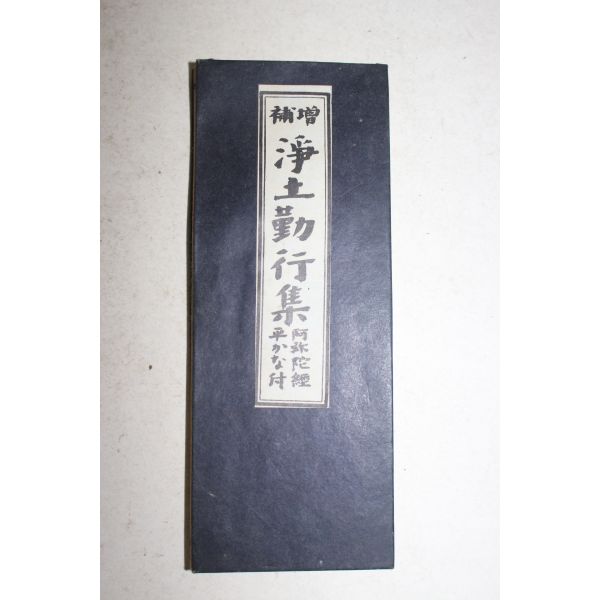 增補
淨土勤行集
阿弥陀經
平かな付